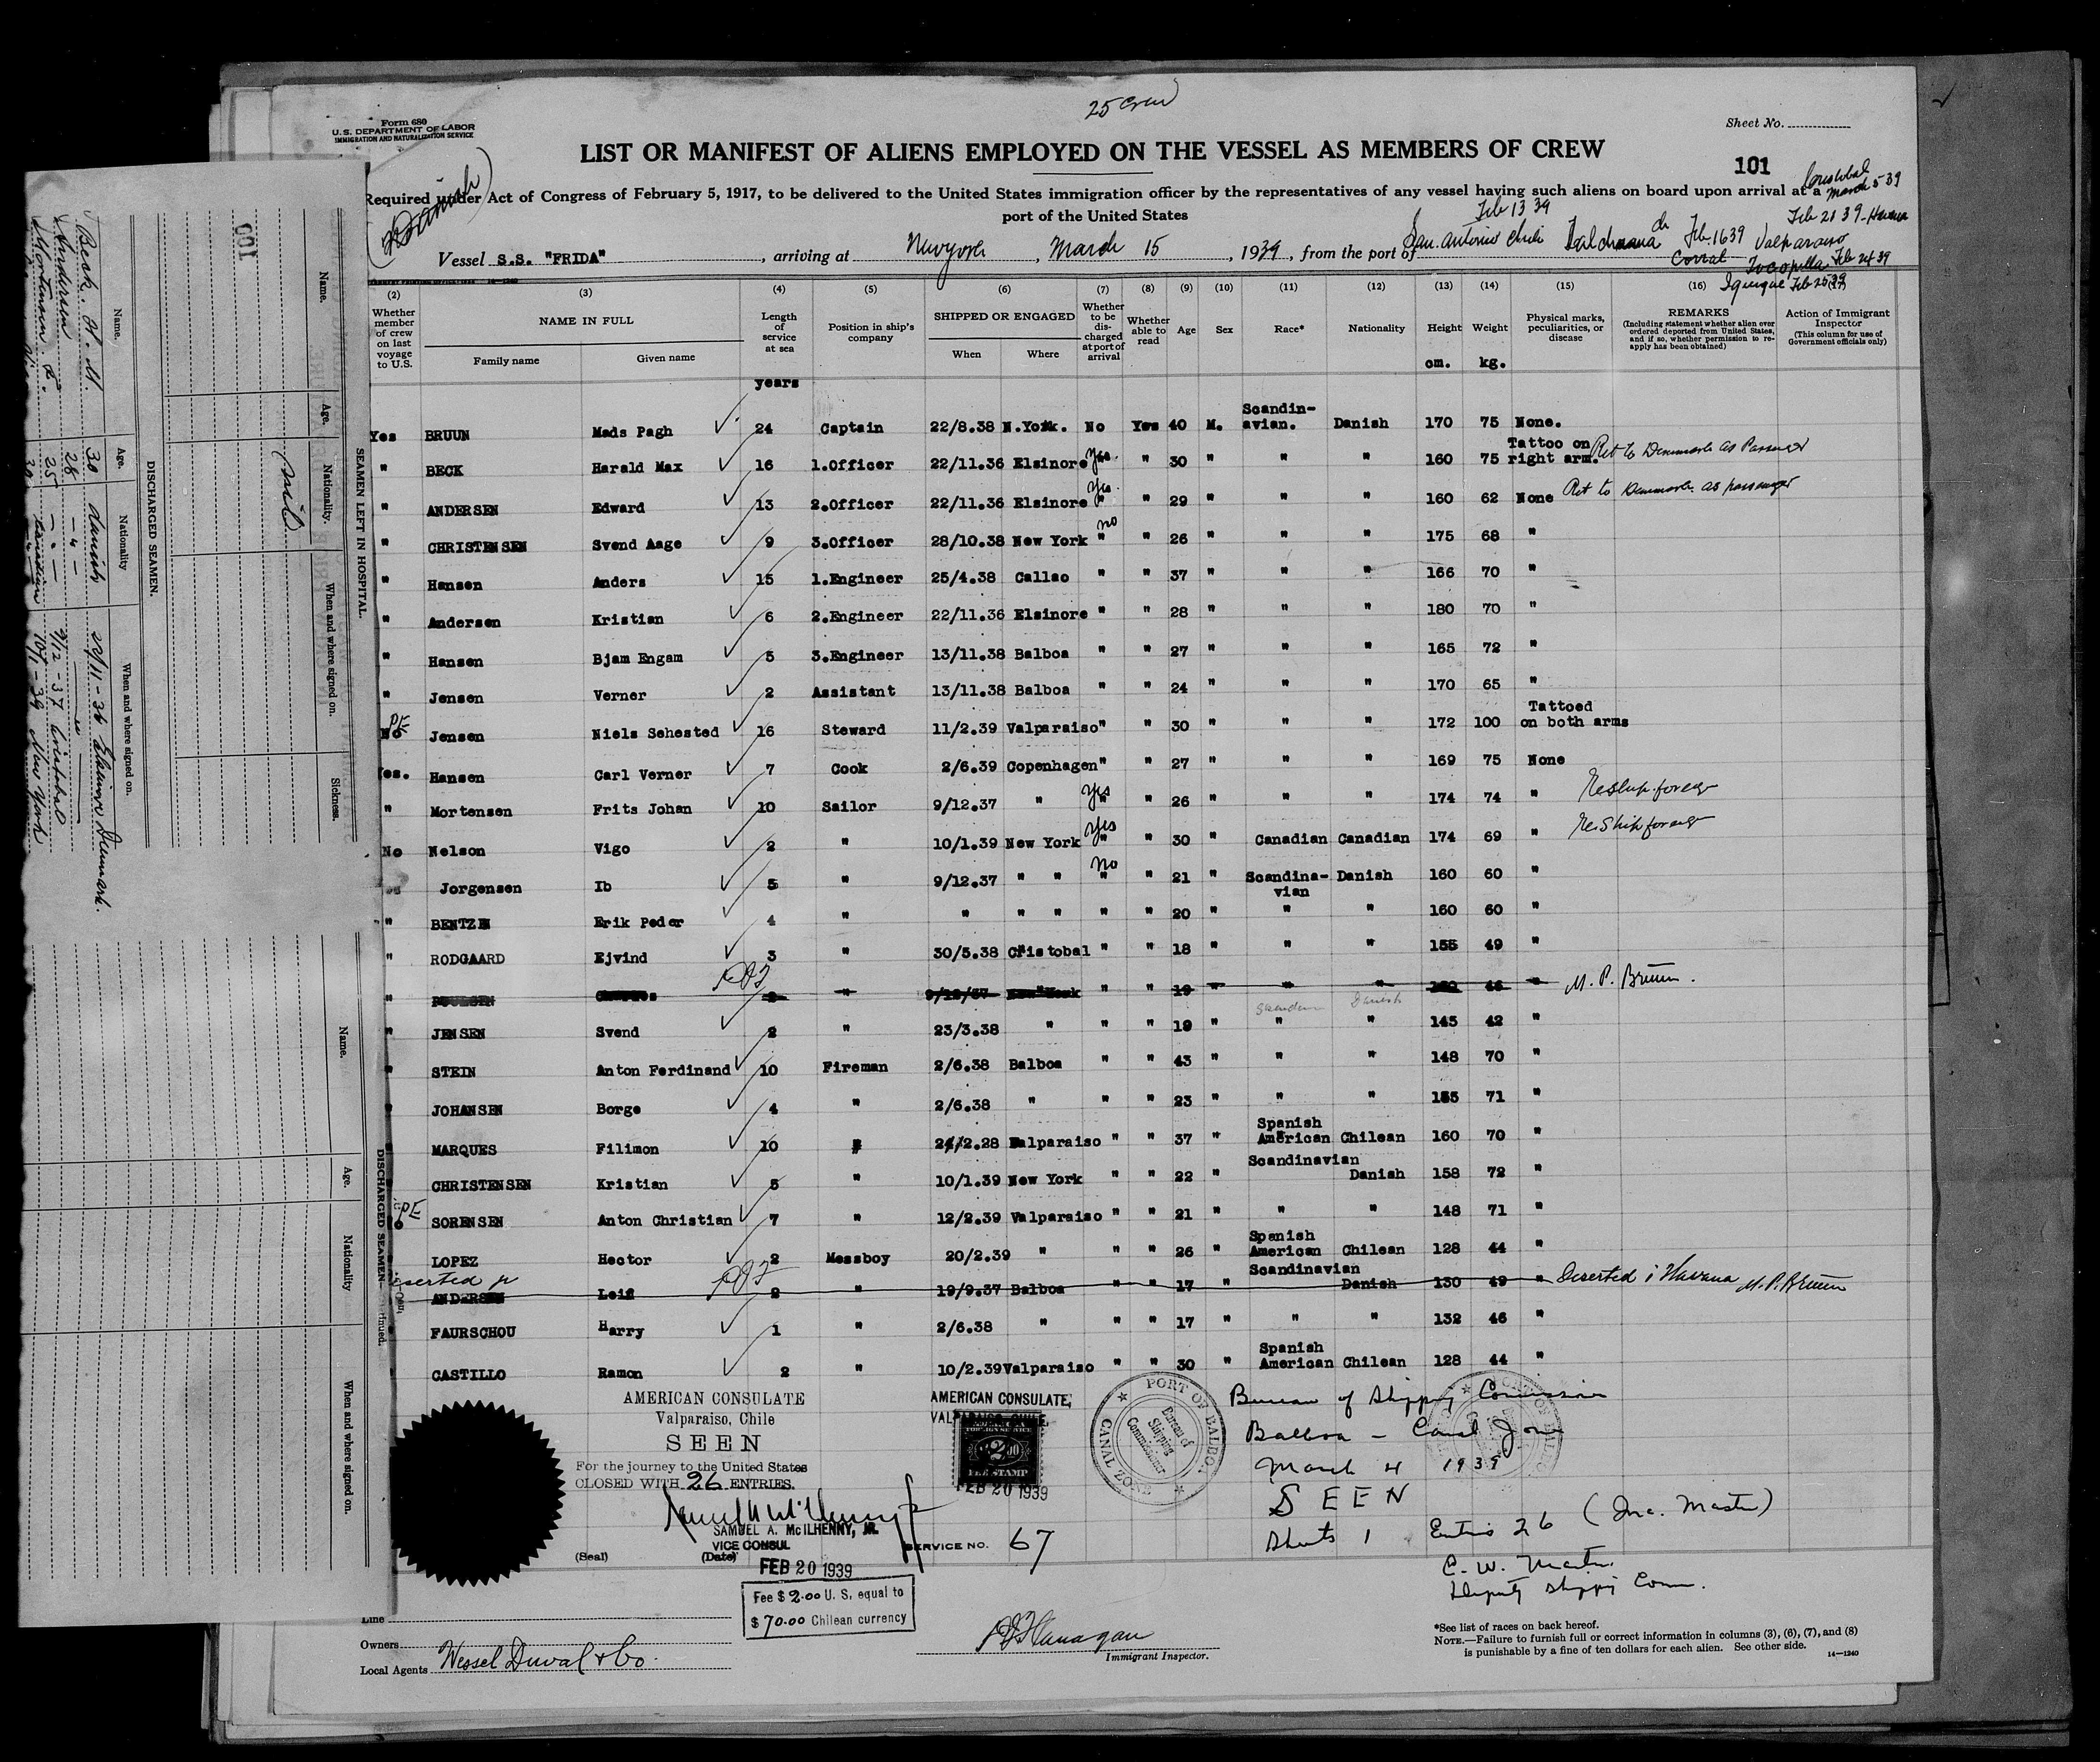 25 Crew
Form 680
U.S. DEPARTMENT OF LABOR
IMMIGRATION AND NATURALIZATION SERVICE
Sheet No.
LIST OR MANIFEST OF ALIENS EMPLOYED ON THE VESSEL AS MEMBERS OF CREW
101
(Danish)
Required under Act of Congress of February 5, 1917, to be delivered to the United States immigration officer by the representatives of any vessel having such aliens on board upon arrival at a
port of the United States
Cristobal March 5 39
Feb 13 39
Feb 21 39 - Havana
Vessel S.S. "FRIDA", arriving at Newyork, March 15, 1939, from the port of San. Antonio Chili Talcahuano Feb. 16 39 Valparaiso
Corral Tocopilla Feb 24 39
Iquique Feb 25 39
(2) (3) (4) (5) (6) (7) (8) (9) (10) (11) (12) (13) (14) (15) (16) (17)
Whether member of crew on last voyage to U.S.
NAME IN FULL
Family name Given name
Length of service at sea
Position in ship's company
SHIPPED OR ENGAGED
When Where
Whether to be discharged at port of arrival
Whether able to read
Age Sex Race* Nationality Height Weight
Physical marks, peculiarities, or disease
REMARKS
(Including statement whether alien ever ordered deported from United States, and if so, whether permission to re-apply has been obtained)
Action of Immigrant Inspector
(This column for use of Government officials only)
years cm. kg.
Yes BRUUN Mads Pagh 24 Captain 22/8.38 N.York. No Yes 40 M. Scandin-avian. Danish 170 75 None.
" BECK Harald Max 16 1.Officer 22/11.36 Elsinore Yes " 30 " " " 160 75 Tattoo on right arm. Ret to Denmark as Passenger
" ANDERSEN Edward 13 2.Officer 22/11.36 Elsinore Yes " 29 " " " 160 62 None Ret to Denmark as passenger
" CHRISTENSEN Svend Aage 9 3.Officer 28/10.38 New York no " " 26 " " " 175 68 "
" Hansen Anders 15 1.Engineer 25/4.38 Callao " " 37 " " " 166 70 "
" Andersen Kristian 6 2.Engineer 22/11.36 Elsinore " " 28 " " " 180 70 "
" Hansen Bjam Engam 5 3.Engineer 13/11.38 Balboa " " 27 " " " 165 72 "
" Jensen Verner 2 Assistant 13/11.38 Balboa " " 24 " " " 170 65 "
PE No Jensen Niels Sehested 16 Steward 11/2.39 Valparaiso " " 30 " " " 172 100 Tattoed on both arms
Yes. Hansen Carl Verner 7 Cook 2/6.39 Copenhagen " " 27 " " " 169 75 None
" Mortensen Frits Johan 10 Sailor 9/12.37 " Yes " " 26 " " " 174 74 " Reship foreign
No Nelson Vigo 2 " 10/1.39 New York Yes " " 30 " Canadian Canadian 174 69 " Re Ship foreign
Jorgensen Ib 5 " 9/12.37 " " No " " 21 " Scandina-vian Danish 160 60 "
" BENTZEN Erik Peder 4 " " " " " " 20 " " " 160 60 "
" RODGAARD Ejvind 3 " 30/5.38 Cristobal " " 18 " " " 155 49 "
" POULSEN " 9/12/37 New York " " 19 " " " " M. P. Bruun.
" JENSEN Svend 2 " 23/3.38 " " " 19 " " " 145 42 "
" STEIN Anton Ferdinand 10 Fireman 2/6.38 Balboa " " 43 " " " 148 70 "
" JOHANSEN Borge 4 " 2/6.38 " " " 23 " " " 155 71 "
" MARQUES Filimon 10 " 24/2.28 Valparaiso " " 37 " Spanish American Chilean 160 70 "
" CHRISTENSEN Kristian 5 " 10/1.39 New York " " 22 " Scandinavian Danish 158 72 "
PE SORENSEN Anton Christian 7 " 12/2.39 Valparaiso " " 21 " " " 148 71 "
LOPEZ Hector 2 Messboy 20/2.39 " " " 26 " Spanish American Chilean 128 44 "
ANDERSEN Leif 2 " 19/9.37 Balboa " " 17 " Scandinavian Danish 130 49 " Deserted i Havana M. P. Bruun
FAURSCHOU Harry 1 " 2/6.38 " " " 17 " " " 132 46 "
CASTILLO Ramon 2 " 10/2.39 Valparaiso " " 30 " Spanish American Chilean 128 44 "
AMERICAN CONSULATE
Valparaiso, Chile
SEEN
For the journey to the United States
CLOSED WITH 26 ENTRIES.
SAMUEL A. McILHENNY, JR.
VICE CONSUL
(Seal) (Date)
FEB 20 1939
Fee $ 2.00 U. S. equal to
$ 70.00 Chilean currency
AMERICAN CONSULATE,
VALPARAISO, CHILE.
FOREIGN SERVICE
$2.00
FEE STAMP
FEB 20 1939
SERVICE NO. 67
PORT OF BALBOA
CANAL ZONE
Bureau of Shipping Commissioner
Bureau of Shipping Commissioner
Balboa - Canal Zone
March 4 1939
SEEN
Sheets 1 Entries 26 (Inc. Master)
C. W. Martin
Deputy Shippg Comm.
Line
Owners
Local Agents Wessel Duval & Co.
Flanagan
Immigrant Inspector.
*See list of races on back hereof.
NOTE.—Failure to furnish full or correct information in columns (3), (6), (7), and (8)
is punishable by a fine of ten dollars for each alien. See other side.
14—1240
100
SEAMEN LEFT IN HOSPITAL.
Name. Age. Nationality. When and where signed on. Sickness.
nil
DISCHARGED SEAMEN.
Name. Age. Nationality When and where signed on.
Beck. H. M. 30 danish 22/11-36 Elsinore Denmark.
Andersen 28 - " -
Mortensen F. 25 - " - 9/12-37 Cristobal
30 Canadian 10/1-39 New York
DISCHARGED SEAMEN—Continued.
Name. Age. Nationality When and where signed on.